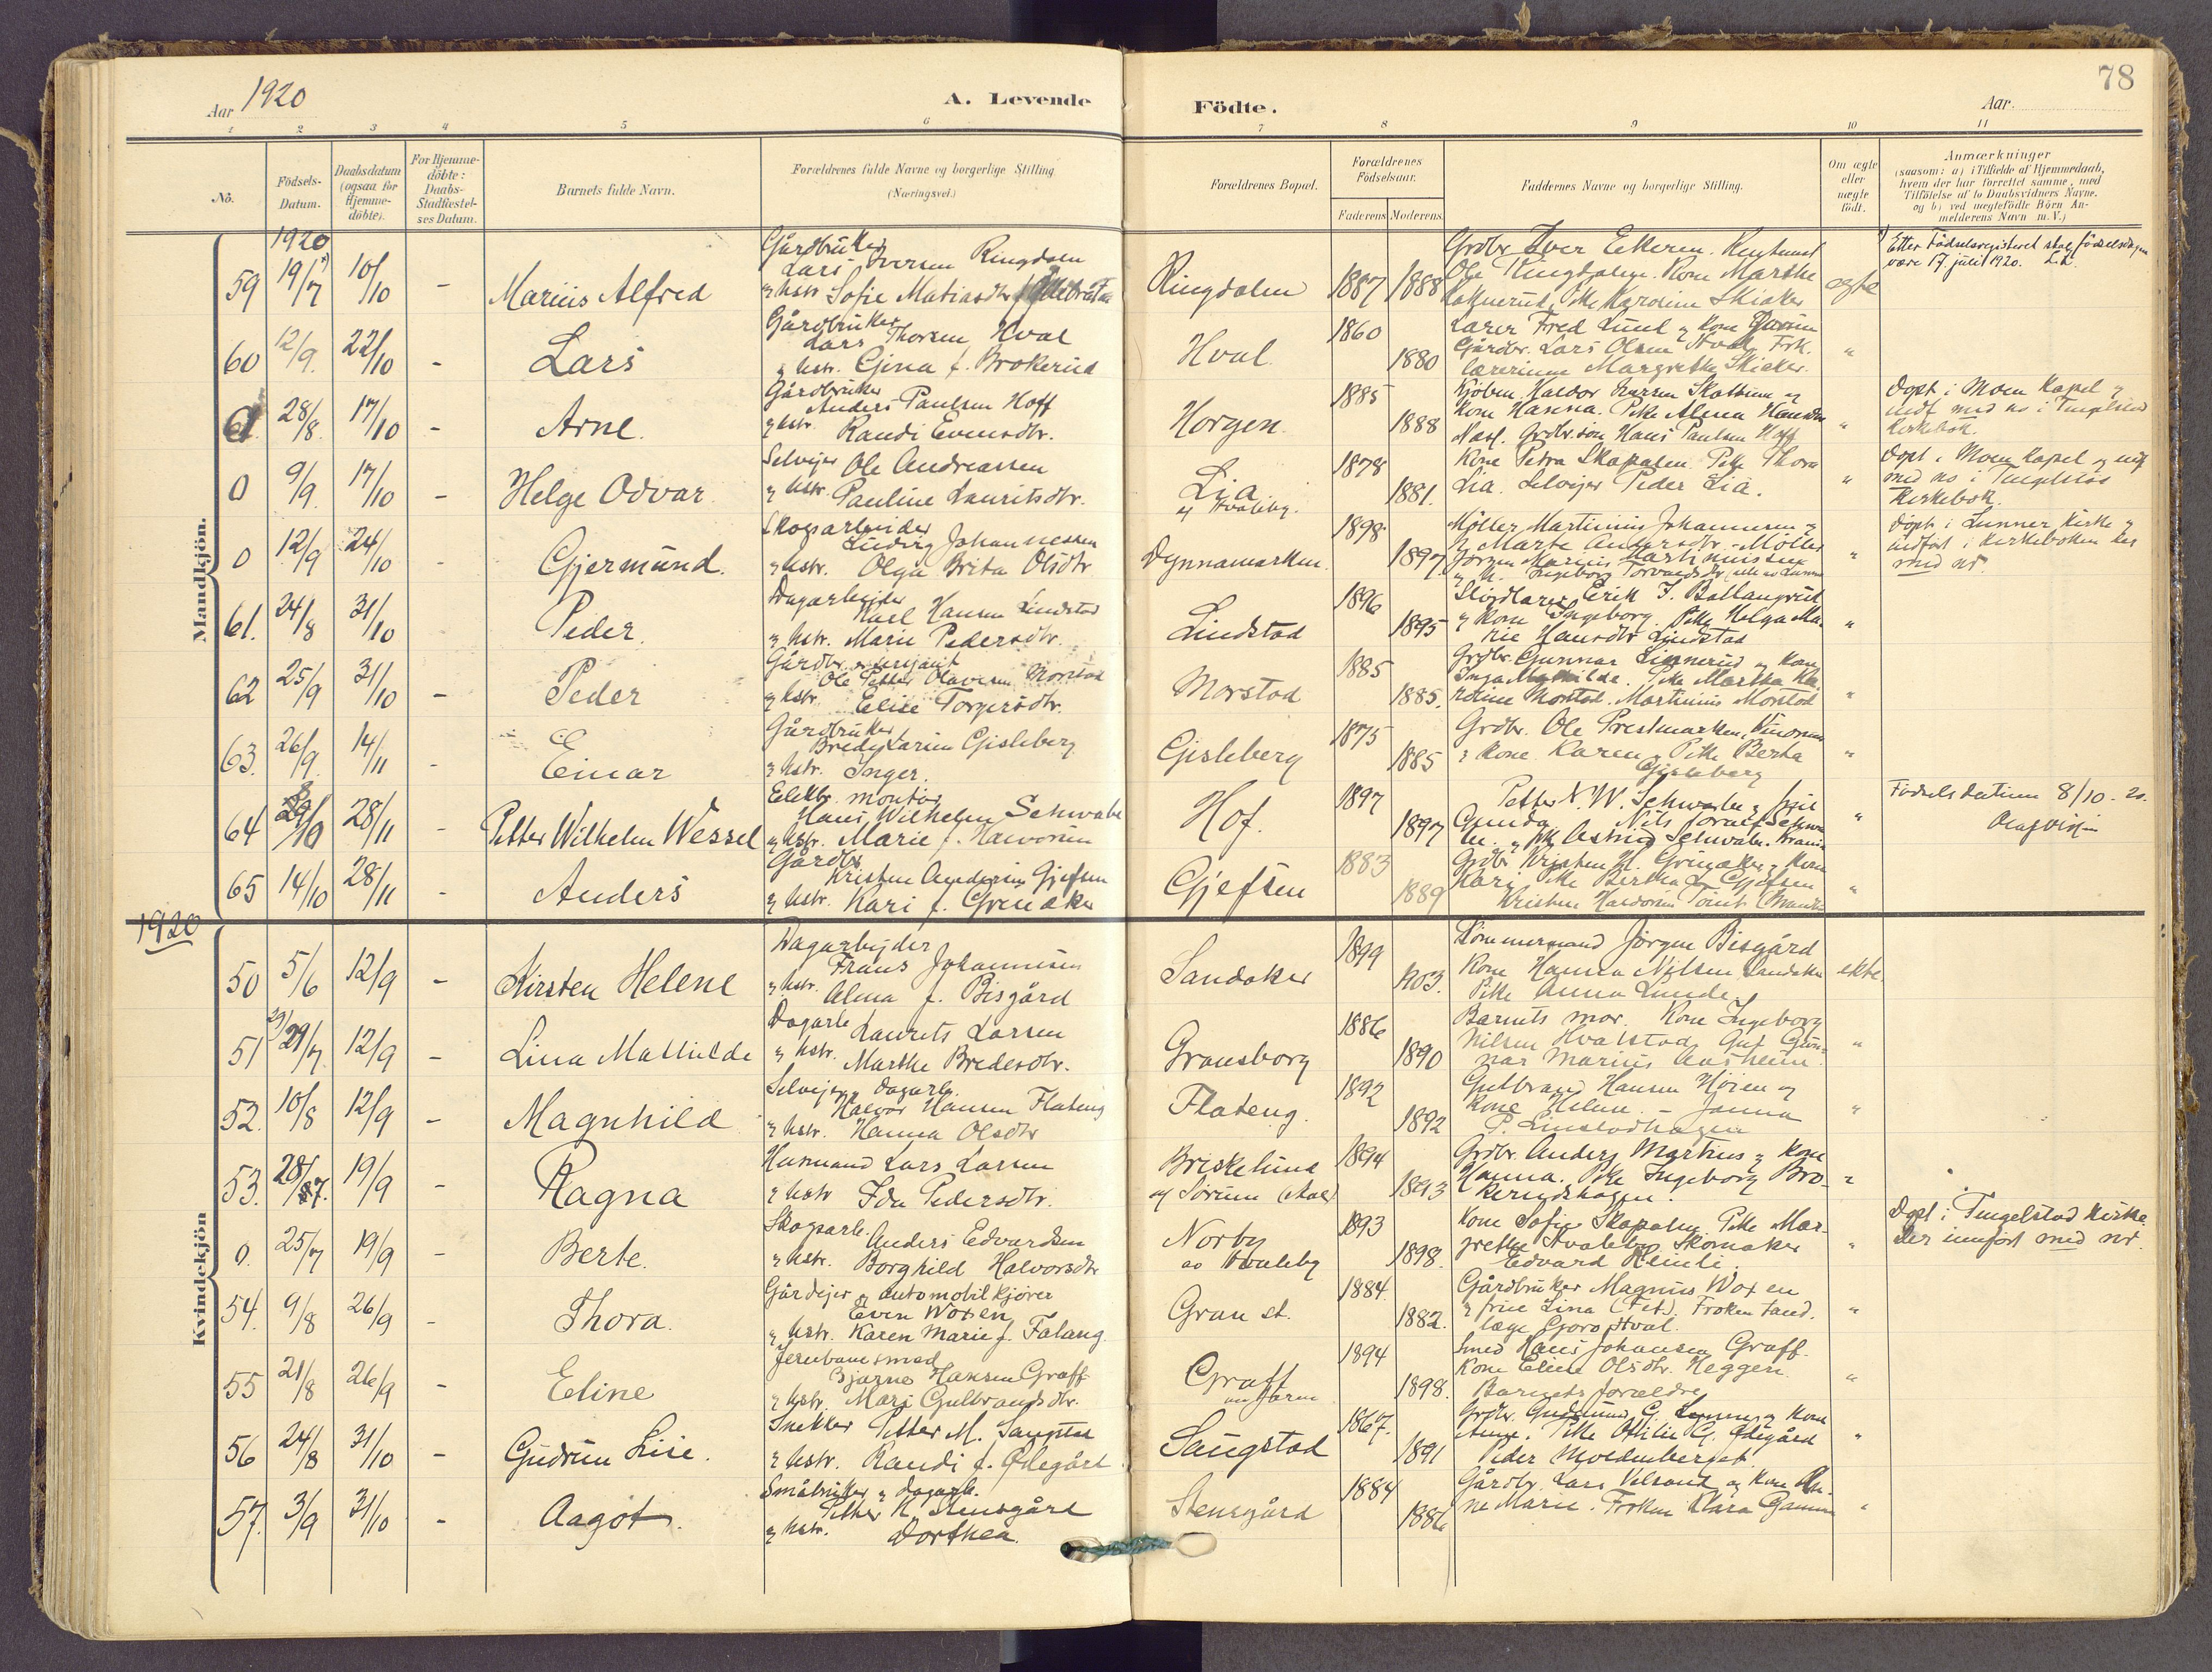 Aar 1920
A. Levende
Födte.
Aar
78
1 2 3 4 5 6 7 8 9 10 11
No.
Födsels-
Datum.
Daabsdatum
(ogsaa for
Hjemme-
döbte).
For Hjemme-
döbte:
Daabs-
Stadfæstel-
ses Datum.
Barnets fulde Navn.
Forældrenes fulde Navne og borgerlige Stilling
(Næringsvei.)
Forældrenes Bopæl.
Forældrenes
Födselsaar.
Faderens Moderens
Faddernes Navne og borgerlige Stilling.
Om ægte
eller
uægte
födt.
Anmærkninger
(saasom: a) i Tilfælde af Hjemmedaab,
hvem der har forrettet samme, med
Tilföielse af to Daabsvidners Navne.
og b) ved uægtefödte Börn An-
melderens Navn m. V.)
Mandkjön.
1920
59 19/7 10/10 - Marius Alfred
Gårdbruker
Lars Iversen Ringdalen
og hstr Sofie Matiasdtr
Ringdalen 1887 1888
Grdbr Iver Eckeren.
Ole Ringdalen. Kone Marthe
Pike Karoline Skiaker
ægte
Etter Fødselsregisteret skal fødselsdagen
være 17 juli 1920.
60 12/9. 22/10 - Lars
Gårdbruker
Lars Thorsen Hval
og hstr. Gina f. Brokerud
Hval 1860 1880
Lærer Fred Lund og kone
Gårdbr. Lars Olsen Hval Frk.
lærerinne Margrethe Skiaker.
"
61. 28/8. 17/10 - Arne.
Gårdbruker
Anders Paulsen Hoff
og hstr. Randi Evensdtr.
Horgen 1885 1888
Kone Hanna. Pike Alma
Grdbr.søn Hans Paulsen Hoff
"
Døpt i Moen Kapel og
indf med no i Tingelstad
kirkebok.
0 9/9. 17/10 - Helge Odvar
Selveier Ole Andreassen
og hstr. Pauline Lauritsdtr.
Lia
af Hvaleby. 1878 1881.
Kone Petra Skapalen. Pike Thora
Lia. Selveier Peder Lia.
"
Døpt i Moen Kapel og
med no i Tingelstad
Kirkebok.
0 12/9 24/10 - Gjermund.
Skogsarbeider
Ludvig Johannessen
og hstr. Olga Brita Olsdtr
Dynnamarken. 1898 1897
Møller Martinius Johannesen og
Marte Andersdtr. Møller
Jörgen Marius Martinussen
"
Døpt i Lunner Kirke og
indført i kirkeboken her
med nr.
61. 24/8 31/10 Peder.
Dagarbeider
Karl Hansen Lindstad
og hstr. Marie Pedersdtr.
Lindstad 1896 1895
Sløidlærer Erik J. Ballangrud
og kone Ingeborg. Pike Helga Ma-
rie Hansdtr Lindstad
"
62 25/9 31/10 - Peder
Gårdbr. og sersjant
Ole Petter Olavesen Morstad
og hstr. Elise Torgersdtr.
Morstad 1885 1885.
Grdbr. Gunnar Linnerud og kone
Inga Mathilde. Pike Martha Ka-
roline Morstad. Martinius Morstad
"
63. 26/9 14/11 - Einar
Gårdbruker
Brede Larsen Gisleberg
og hstr. Inger.
Gisleberg 1875 1885
Grdbr. Ole Prestmarken,
og kone Karen, Pike Berta
Gisleberg
"
64 /10 28/11 - Petter Wilhelm Wessel
Elektr. montør
Hans Wilhelm Schwabe
og hstr. Marie f. Halvorsen
Hof. 1897 1897
Petter N. W. Schwabe og frue
Gunda. Nils
og frk Astrid Schwabe.
"
Fødselsdatum 8/10-20.
65 14/10 28/11 - Anders
Gårdbr.
Kristen Andersen Gjefsen
og hstr. Kari f. Grinaker
Gjefsen 1883 1889
Grdbr Kristen H. Grinaker og kone
Kari Pike Bertha L. Gjefsen
Kristen Halvorsen Tomt
"
1920
Kvindekjön
50 5/6 12/9 - Kirsten Helene
Dagarbeider
Frans Johannesen
og hstr. Alma f. Bisgård
Sandaker 1899 1903.
Tömmermand Jörgen Bisgård
Kone Hanna Nilsen Sandaker
Pike Anna Lunde
ekte.
51 29/7 12/9 - Lina Mathilde
Dagarb Laurits Larsen
og hstr. Marthe Bredesdtr.
Gransborg 1886 1890
Barnets mor. Kone Ingeborg
Nilsen Hvalstad. Gut Gun-
nar Marius Aasheim.
"
52. 10/8 12/9 - Magnhild
Selveier og dagarb.
Halvor Hansen Flateng
og hstr. Hanna Olsdtr
Flateng. 1892 1892
Gulbrand Hansen Høien og
kone Helene. - Janna
P. Linstadhagen
"
53. 28/7. 19/9 - Ragna
Husmand Lars Larsen
og hstr Ida Pedersdtr.
Briskelund
af Sørum 1894 1893
Grdbr. Anders Martius og kone
Hanna. Pike Ingeborg Bro-
kerudshagen.
"
0. 25/7 19/9 - Berte.
Skogsarb. Anders Edvardsen
og hstr. Borghild Halvorsdtr
Norby
av Hvaleby 1893 1898.
Kone Sofie Skapalen Pike Mar-
grethe Hvaleby. Skomaker
Edvard Heimli.
"
Døpt i Tingelstad kirke.
Der innført med nr.
54. 9/8 26/9 - Thora.
Gårdeier og automobilkjører
Even Woxen
og hstr. Karen Marie f. Falang
Gran st. 1884. 1882.
Gårdbruker Magnus Woxen
og frue Lina (Fet). Frøken tand.
læge Goro Hval.
"
55 21/8 26/9 - Eline
Jernbanesmed
Bjarne Hansen Graff
og hstr. Mari Gulbrandsdtr.
Graff 1894 1898.
Smed Hans Johansen Graff.
Kone Eline Olsdtr. Heggen.
Barnets forældre
"
56 24/8 31/10 - Gudrun Lise.
Snekker Petter M. Saugstad
og hstr. Randi f. Ødegård
Saugstad 1867. 1891
Grdbr. Gudmund G. og kone
Anne. Pike Ottilie G. Ødegård
Peder Moldenberget.
"
57. 3/9 31/10 - Aagot.
Småbruker og dagarb.
Petter K. Stensgård
og hstr. Dorthea.
Stensgård 1884 1886
Gårdbr. Lars Velsand og kone An-
ne Marie. Frøken Klara Gamme
"